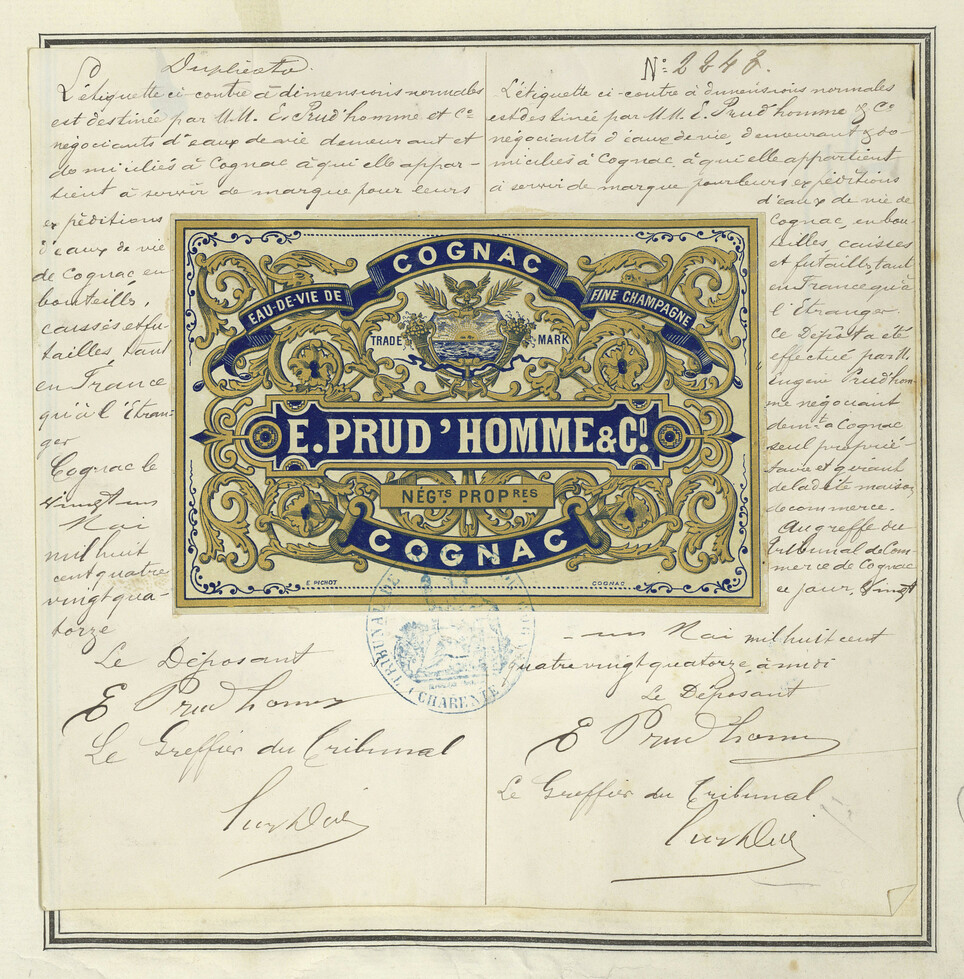 Duplicata.
L'étiquette ci-contre à dimensions normales
est destinée par M.M. E. Prud'homme et Cie
négociants d'eaux de vie demeurant et
domiciliés à Cognac à qui elle appar-
tient à servir de marque pour leurs
expéditions
d'eaux de vie
de Cognac, en
bouteilles,
caisses et fu-
tailles, tant
en France
qu'à l'Etran-
ger
Cognac le
vingt-un
Mai
mil huit
cent quatre
vingt qua-
torze
Le Déposant
E Prudhomme
Le Greffier du Tribunal
N° 2248.
L'étiquette ci-contre à dimensions normales
est destinée par M.M. E. Prud'homme & Co
négociants d'eaux de vie, demeurant & do-
miciliés à Cognac à qui elle appartient
à servir de marque pour leurs expéditions
d'eaux de vie de
Cognac, en bou-
teilles, caisses
et futailles, tant
en France qu'à
l'Etranger.
Ce Dépôt a été
effectué par M.
Eugène Prud'hom-
me négociant
demt à Cognac
seul proprié-
taire et gérant
de la dite maison
de commerce.
Au greffe du
Tribunal de Com-
merce de Cognac
ce jour vingt
-un Mai mil huit cent
quatre vingt quatorze, à midi
Le Déposant
E Prudhomme
Le Greffier du Tribunal
COGNAC
EAU-DE-VIE DE
FINE CHAMPAGNE
TRADE MARK
E. PRUD'HOMME & Co.
NÉGts PROPres
COGNAC
E. PICHOT
COGNAC
TRIBUNAL DE
(CHARENTE)